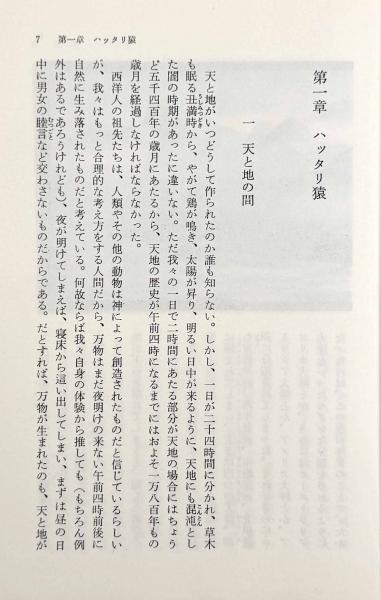 7　第一章　ハッタリ猿
第一章　ハッタリ猿
一　天と地の間
天と地がいつどうして作られたのか誰も知らない。しかし、一日が二十四時間に分かれ、草木
も眠る丑満時から、やがて鶏が鳴き、太陽が昇り、明るい日中が来るように、天地にも混沌とし
た闇の時期があったに違いない。ただ我々の一日で二時間にあたる部分が天地の場合にはちょう
ど五千四百年の歳月にあたるから、天地の歴史が午前四時になるまでにはおよそ一万八百年もの
歳月を経過しなければならなかった。
西洋人の祖先たちは、人類やその他の動物は神によって創造されたものだと信じているらしい
が、我々はもっと合理的な考え方をする人間だから、万物はまだ夜明けの来ない午前四時前後に
自然に生み落されたものだと考えている。何故ならば我々自身の体験から推しても（もちろん例
外はあるであろうけれども）、夜が明けてしまえば、寝床から這い出してしまい、まずは昼の日
中に男女の睦言など交わさないものだからである。だとすれば、万物が生まれたのも、天と地が